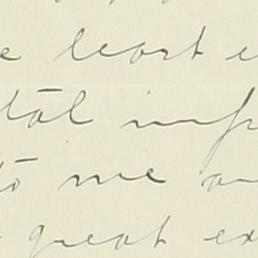 e least i
tal imp
to me an
great ex